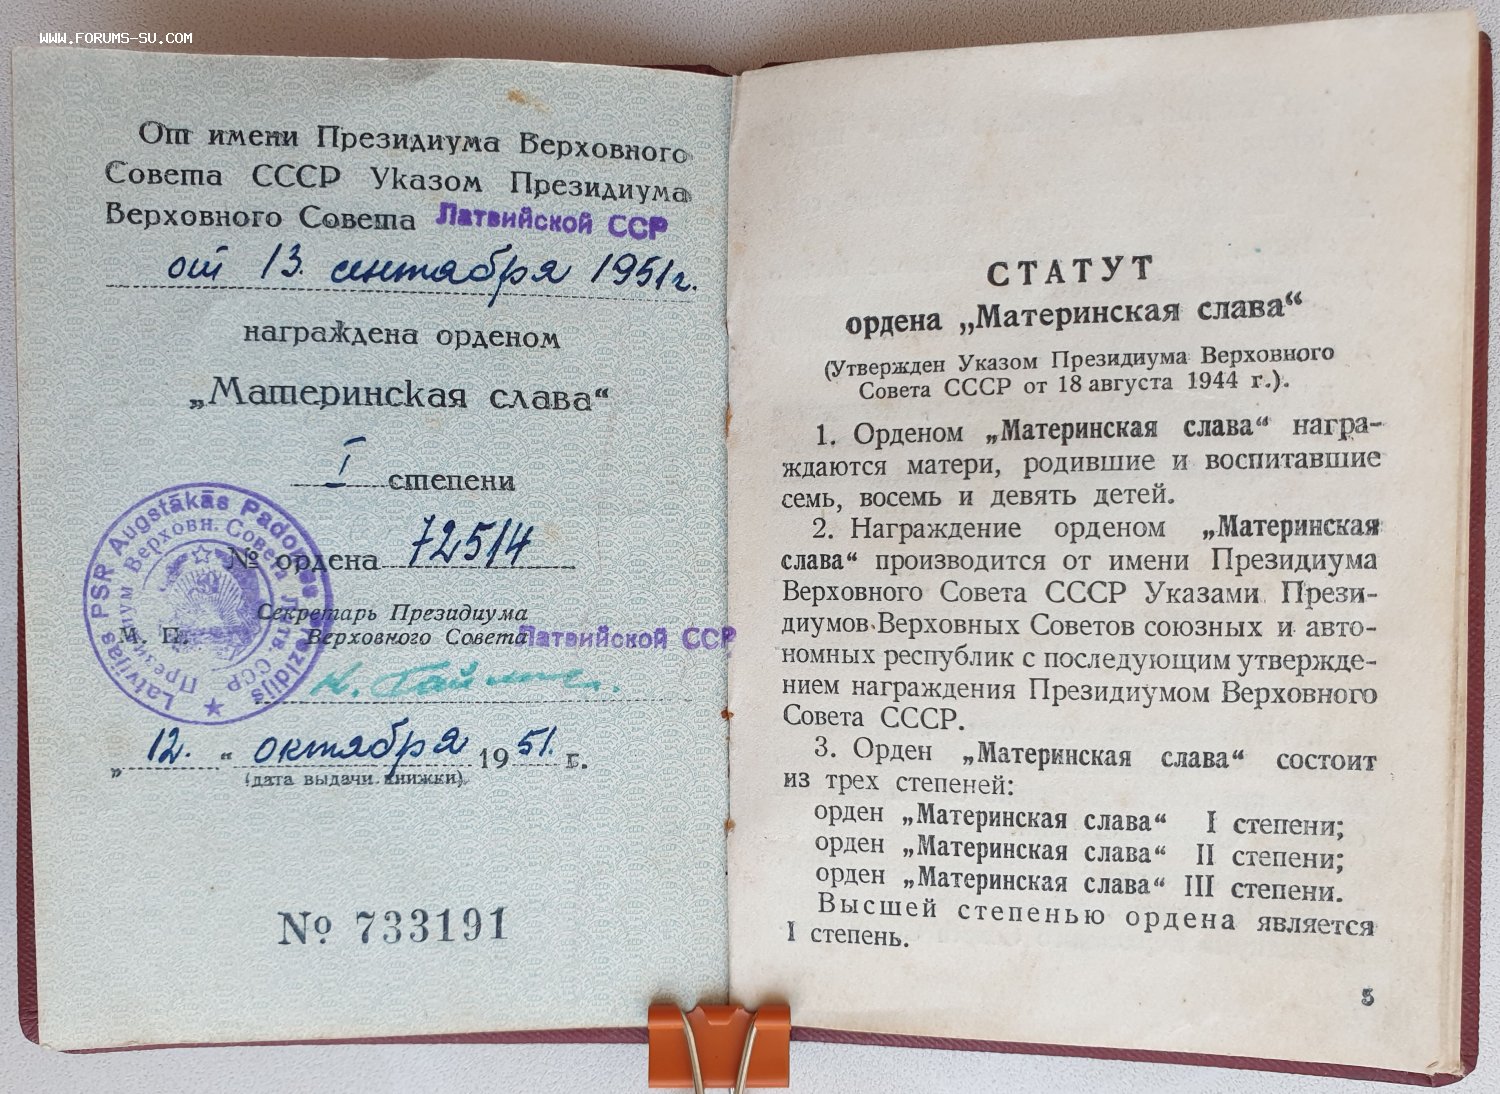 WWW.FORUMS-SU.COM
От имени Президиума Верховного
Совета СССР Указом Президиума
Верховного Совета Латвийской ССР
от 13. сентября 1951 г.
награждена орденом
„Материнская слава“
I степени
№ ордена 72514
Секретарь Президиума
М. П. Верховного Совета Латвийской ССР
„12.“ октября 1951. г.
(дата выдачи книжки)
№ 733191
Latvijas PSR Augstākās Padomes Prezidijs
Президиум Верховн. Совета Латв. ССР
СТАТУТ
ордена „Материнская слава“
(Утвержден Указом Президиума Верховного
Совета СССР от 18 августа 1944 г.).
1. Орденом „Материнская слава“ награ-
ждаются матери, родившие и воспитавшие
семь, восемь и девять детей.
2. Награждение орденом „Материнская
слава“ производится от имени Президиума
Верховного Совета СССР Указами Прези-
диумов Верховных Советов союзных и авто-
номных республик с последующим утвержде-
нием награждения Президиумом Верховного
Совета СССР.
3. Орден „Материнская слава“ состоит
из трех степеней:
орден „Материнская слава“ I степени;
орден „Материнская слава“ II степени;
орден „Материнская слава“ III степени.
Высшей степенью ордена является
I степень.